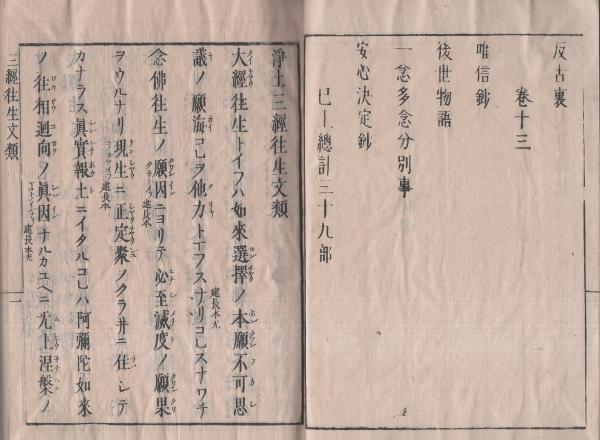 反古裏
卷十三
唯信鈔
後世物語
一念多念分別事
安心決定鈔
已上總計三十九部
淨土三經往生文類
大經往生トイフハ如來選擇ノ本願不可思
議ノ願海コレヲ他力トマフスナリコレスナワチ
念佛往生ノ願因ニヨリテ必至滅度ノ願果
ヲウルナリ現生ニ正定聚ノクラ井ニ住シテ
カナラス眞實報土ニイタルコレハ阿彌陀如來
ノ往相廻向ノ眞因ナルカユヘニ无上涅槃ノ
三經往生文類
一